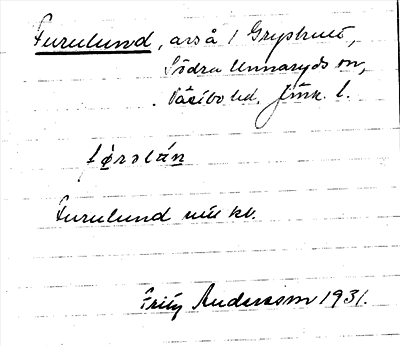 Furulund, avs å / Gryshult,
Södra Unnaryds sn,
Västbo hd. Jönk. l.
Furulund
Fritz Andersson 1931.